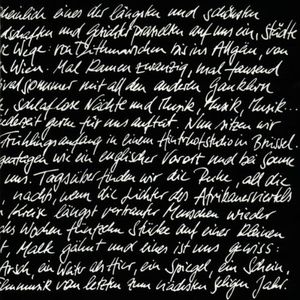 heinlich eines der längsten und schönsten
schaften und Gesichter prasselten auf uns ein, Städte
Wege: von Dithmarschen bis ins Allgäu, von
Wien. Mal kamen zwanzig, mal tausend
sommer mit all den andern Gauklern
schlaflose Nächte und Musik, Musik, Musik...
jederzeit gern für uns auftat. Nun sitzen wir
Frühlingsanfang in einem Hinterhofstudio in Brüssel.
tagen wie ein englischer Vorort und bei Sonne
uns. Tagsüber finden wir die Ruhe, all die
nachts, wenn die Lichter des Afrikanerviertels
Kreis längst vertrauter Menschen wieder
Wochen fünfzehn Stücke auf einer kleinen
Malk gähnt und eines ist uns gewiss:
Arsch, ein Wahr als Hier, ein Spiegel, ein Schein,
musik vom letzten zum nächsten seligen Jahr.